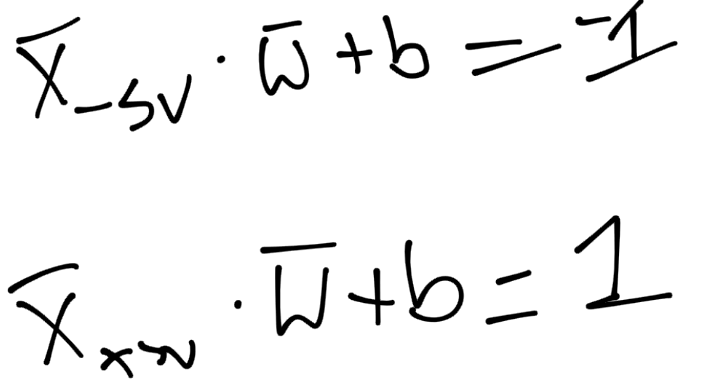 x̄₋SV · w̄ + b = -1
x̄₊SV · w̄ + b = 1